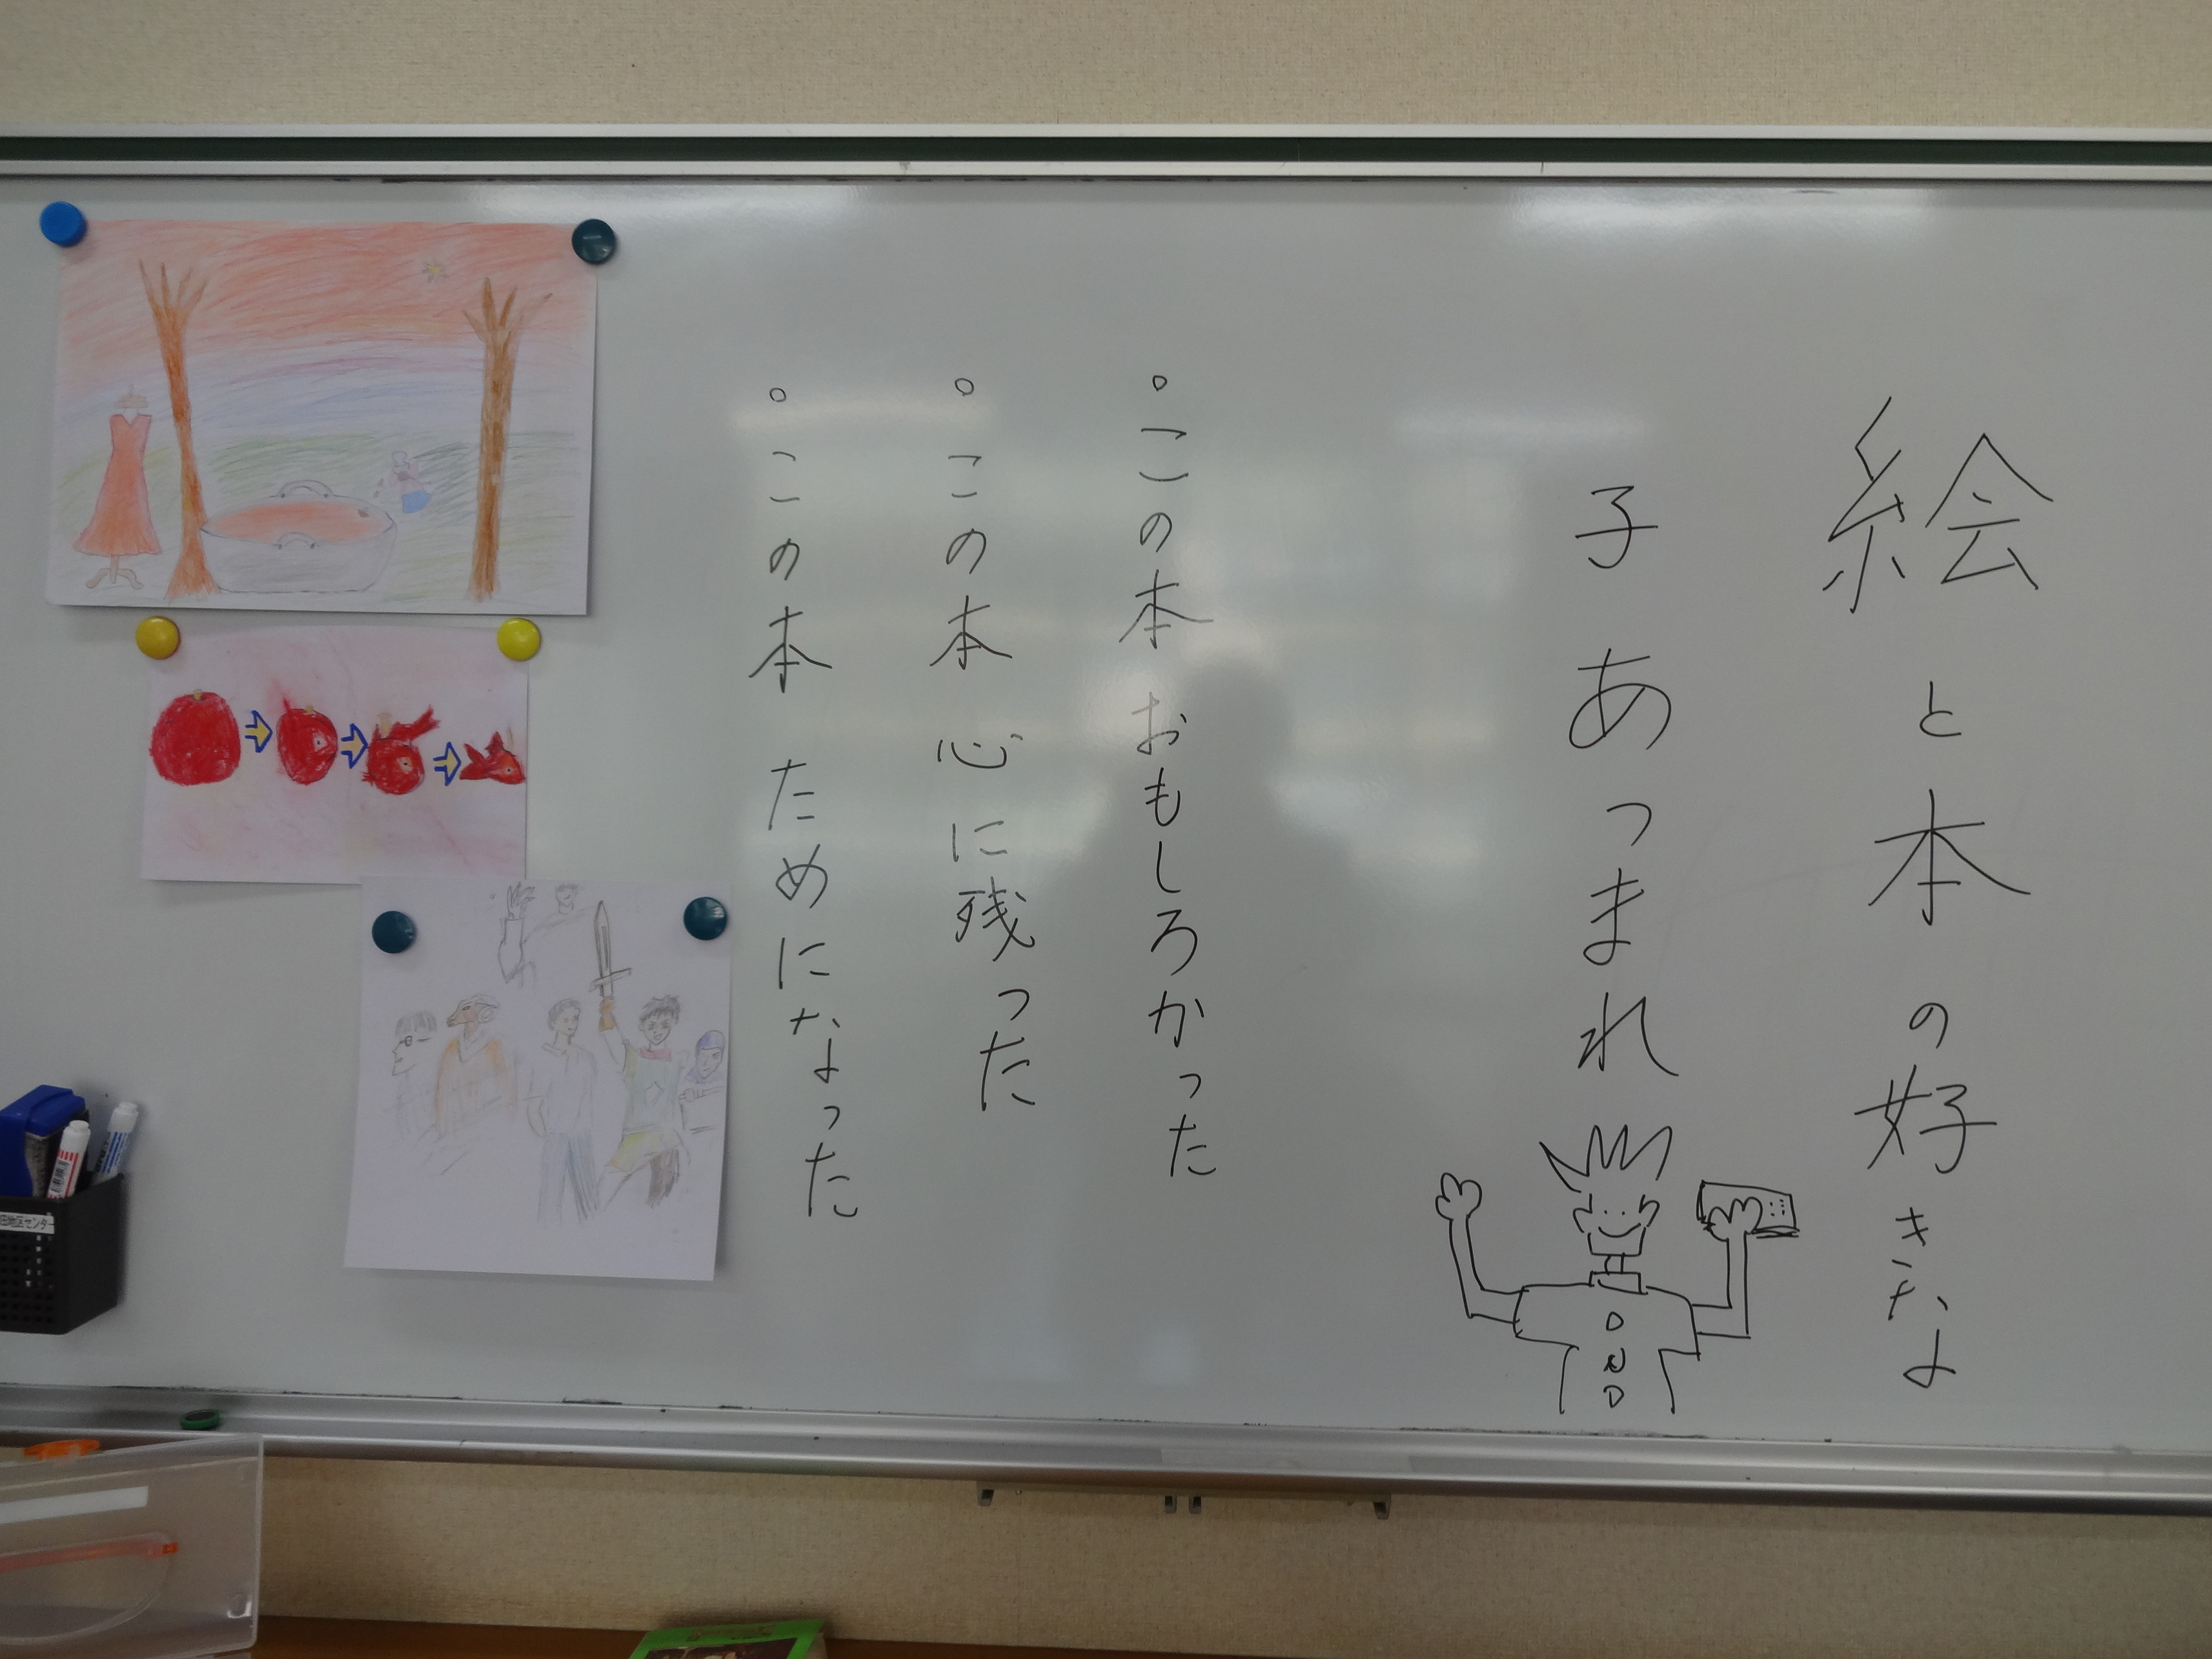 絵と本の好きなよ
子あつまれ
DND
。この本おもしろかった
。この本 心に残った
。この本 ためになった
地区センター